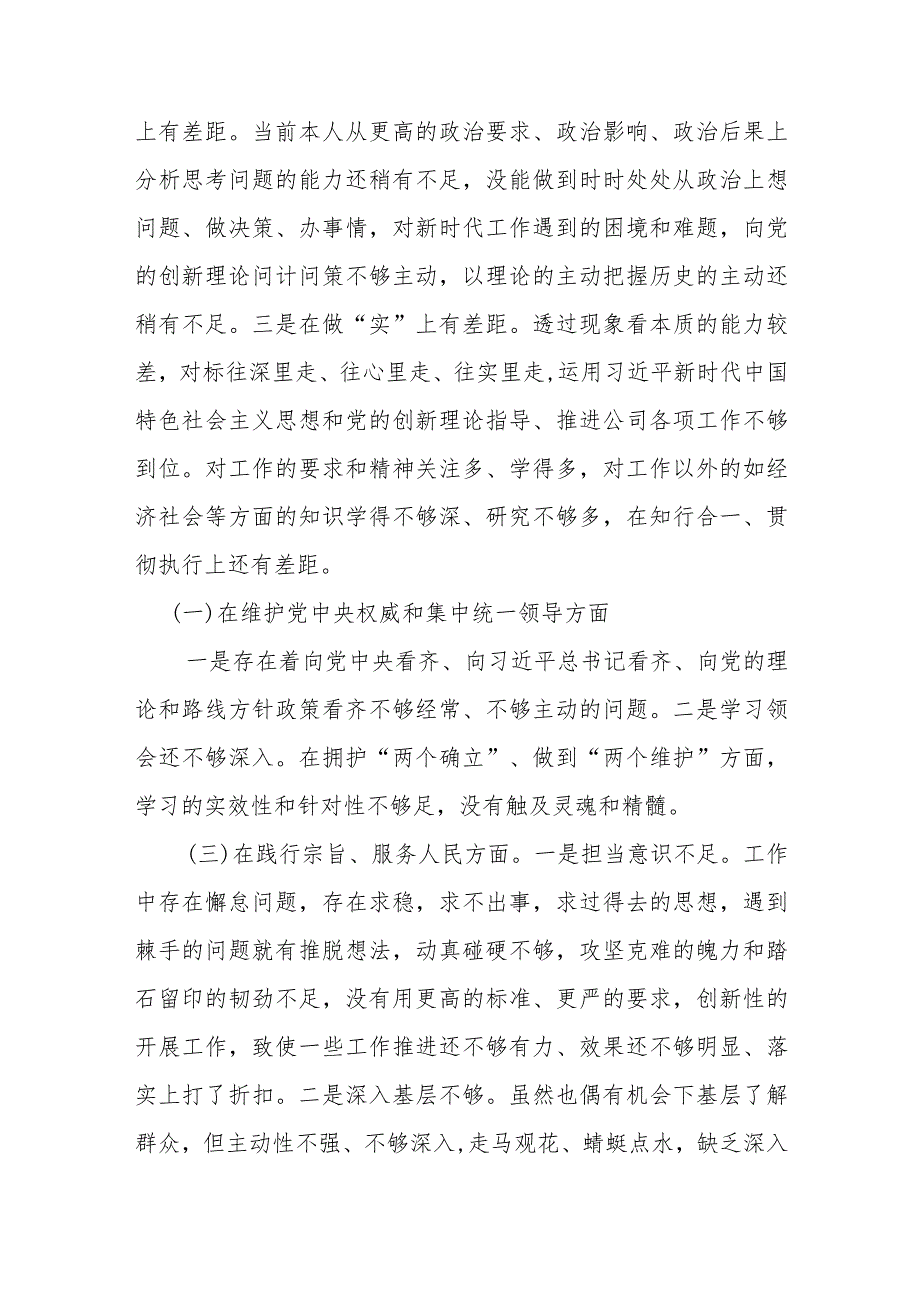 上有差距。当前本人从更高的政治要求、政治影响、政治后果上
分析思考问题的能力还稍有不足，没能做到时时处处从政治上想
问题、做决策、办事情，对新时代工作遇到的困境和难题，向党
的创新理论问计问策不够主动，以理论的主动把握历史的主动还
稍有不足。三是在做“实”上有差距。透过现象看本质的能力较
差，对标往深里走、往心里走、往实里走,运用习近平新时代中国
特色社会主义思想和党的创新理论指导、推进公司各项工作不够
到位。对工作的要求和精神关注多、学得多，对工作以外的如经
济社会等方面的知识学得不够深、研究不够多，在知行合一、贯
彻执行上还有差距。
(一)在维护党中央权威和集中统一领导方面
一是存在着向党中央看齐、向习近平总书记看齐、向党的理
论和路线方针政策看齐不够经常、不够主动的问题。二是学习领
会还不够深入。在拥护“两个确立”、做到“两个维护”方面，
学习的实效性和针对性不够足，没有触及灵魂和精髓。
(三)在践行宗旨、服务人民方面。一是担当意识不足。工作
中存在懈怠问题，存在求稳，求不出事，求过得去的思想，遇到
棘手的问题就有推脱想法，动真碰硬不够，攻坚克难的魄力和踏
石留印的韧劲不足，没有用更高的标准、更严的要求，创新性的
开展工作，致使一些工作推进还不够有力、效果还不够明显、落
实上打了折扣。二是深入基层不够。虽然也偶有机会下基层了解
群众，但主动性不强、不够深入,走马观花、蜻蜓点水，缺乏深入